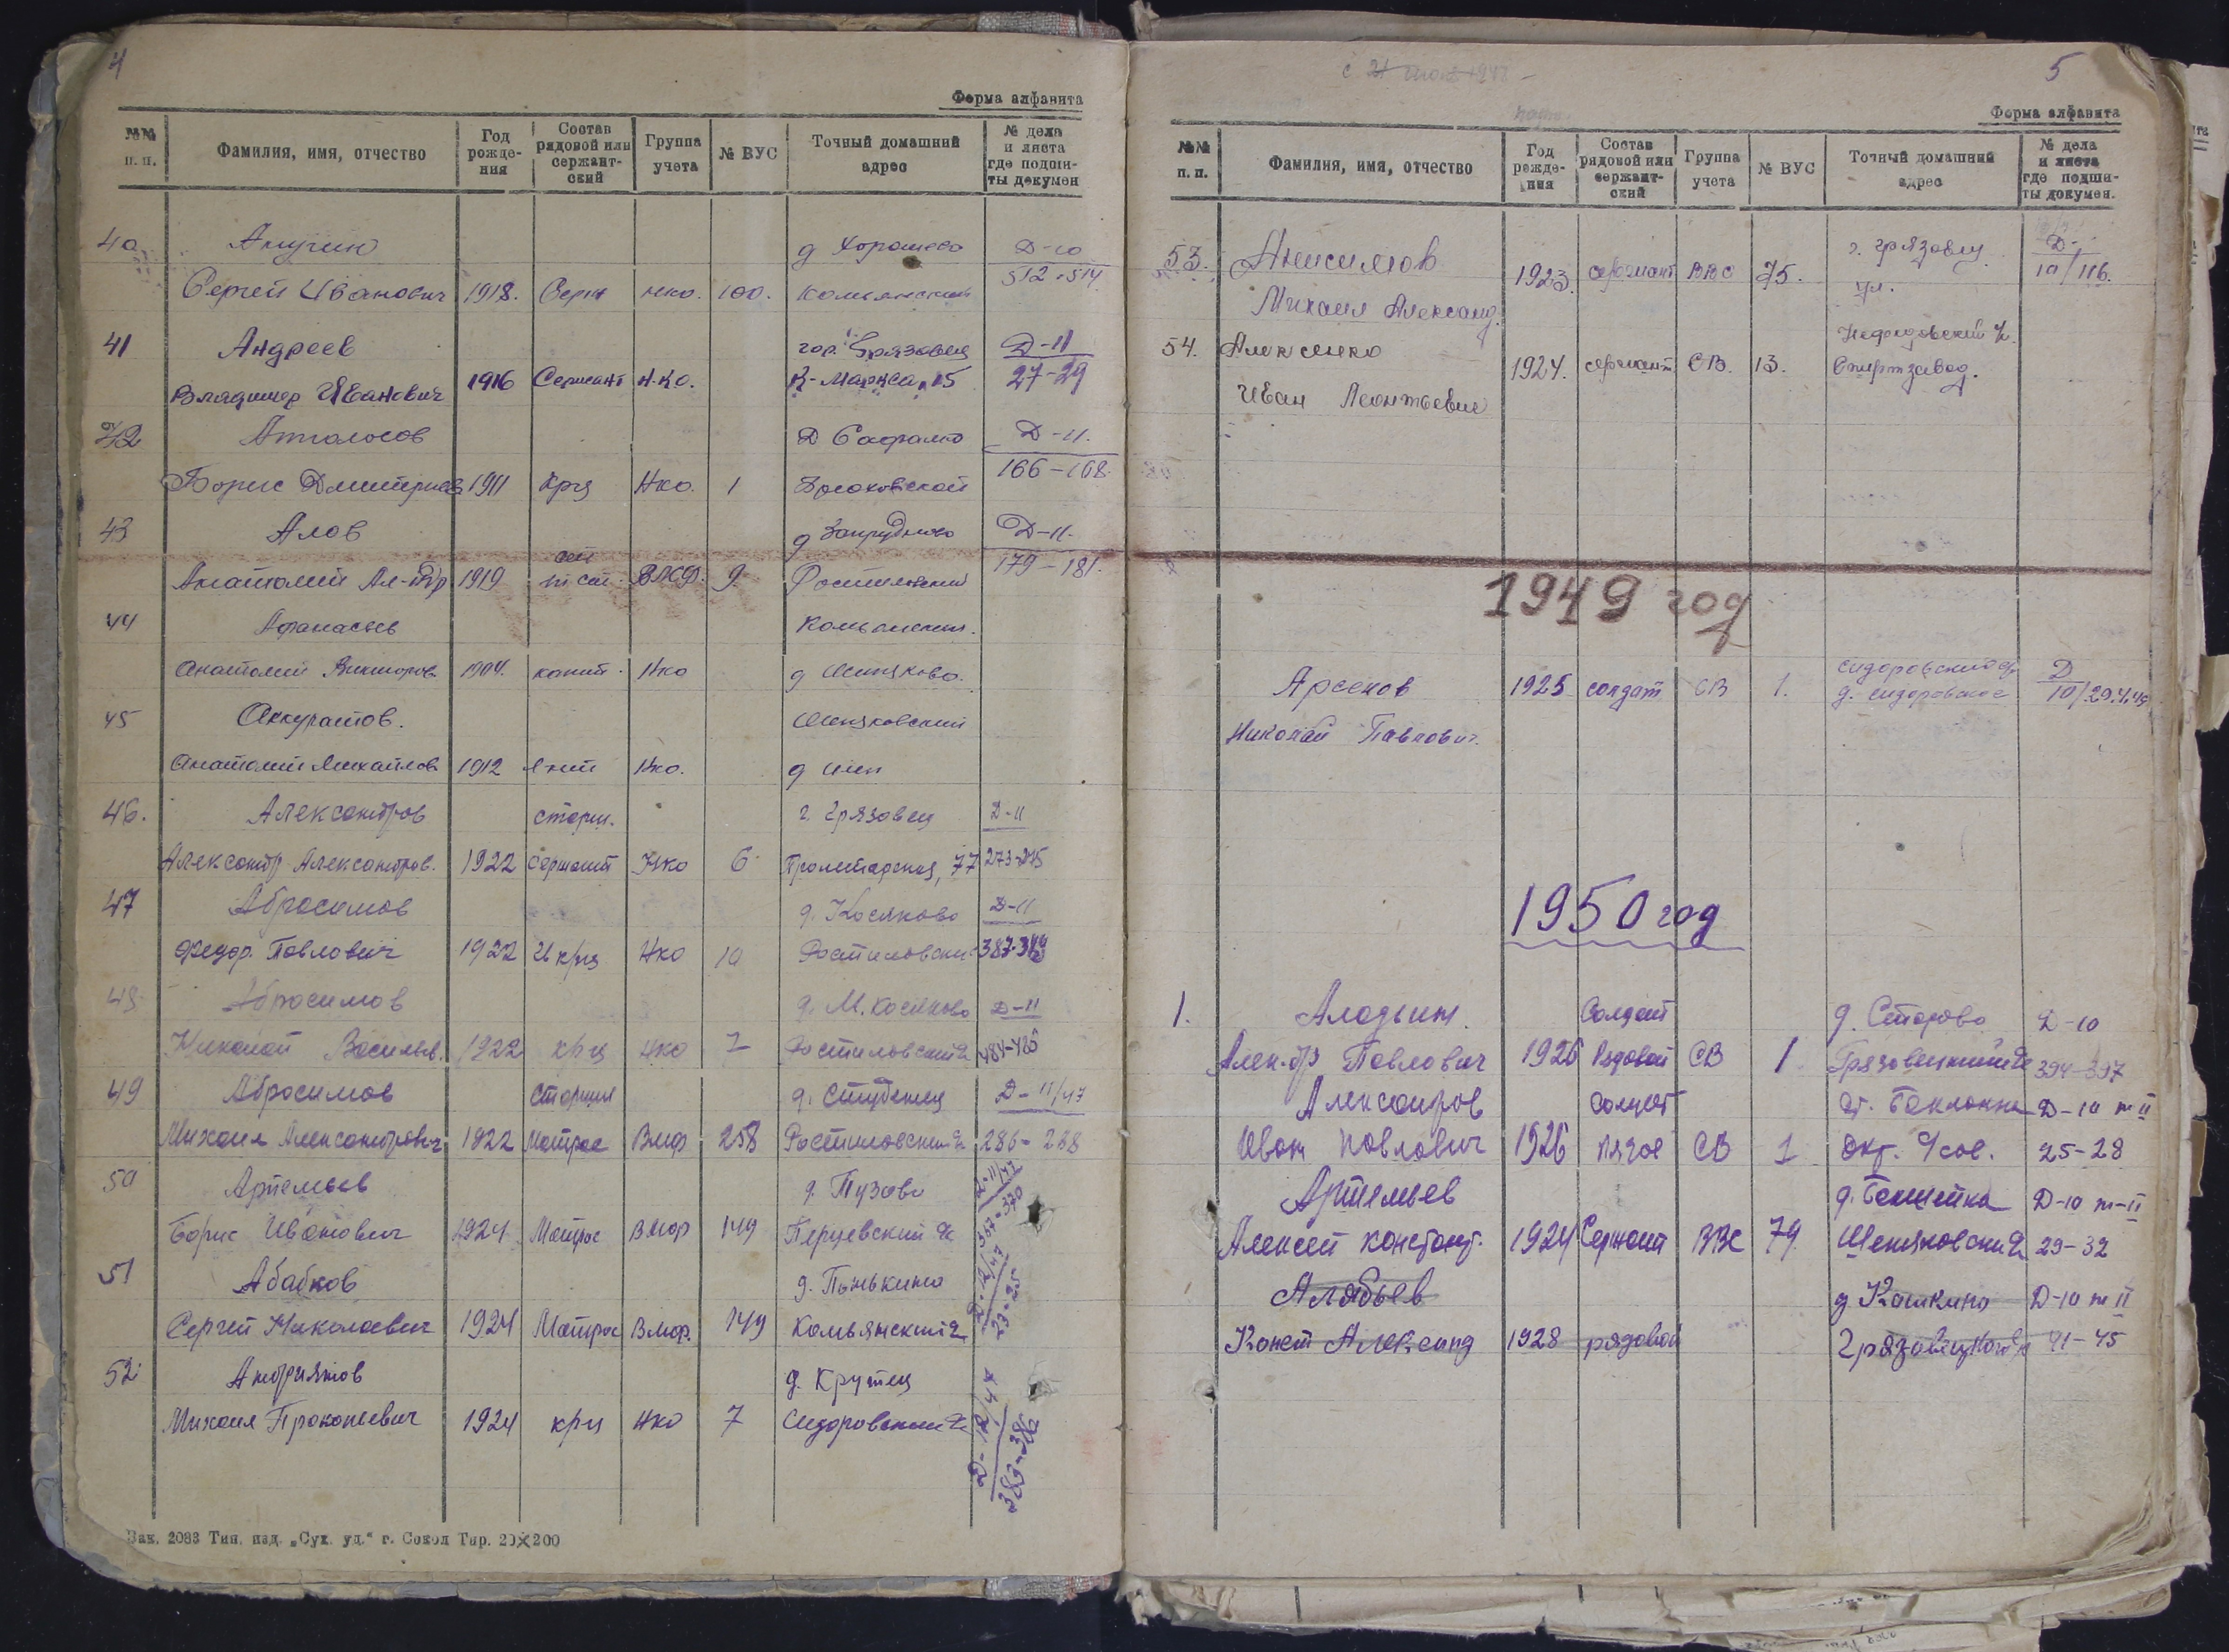 4
Форма алфавита
№№ п. п. Фамилия, имя, отчество Год рожде-ния Состав рядовой или сержант-ский Группа учета № ВУС Точный домашний адрес № дела и листа где подши-ты докумен
40 Анучин д Хорошево Д-10
Сергей Иванович 1918. Серж нко. 100. Комьянский 512-514
41 Андреев гор. Грязовец Д-11
Владимир Иванович 1916 Сержант Н.К.О. К-Маркса, 15 27-29
42 Д-11.
Борис Дмитриев 1911 Кр-ц Нко. 1 166-168
43 Алов д Запрудново Д-11.
Анатолий Ал-др 1919 ВМФ. 9. Ростиловский 179-181.
44 Афанасьев Комьянский.
Анатолий Викторов. 1904. капит. Нко
45 Аккуратов.
Анатолий Михайлов 1912 Нко.
46. Александров старш. г. Грязовец Д-11
Александр Александров. 1922 Сержант Нко 6 Пролетарская, 77 273-275
47 Абросимов д. Косяково Д-11
Федор. Павлович 1922 кр-ц Нко 10 Ростиловский
48. Абросимов д. М. Косяково Д-11
Николай Васильев. 1922 кр-ц Нко 7 Ростиловский
49 Абросимов старший д. Студенец Д-11/47
Михаил Александрович 1922 Матрос Вмф 258 Ростиловский 286-288
50 Артемьев д. Пузово Д-11/47
Борис Иванович 1924 Матрос Вмор 149 Перцевский 367-370
51 Абабков д. Пенькино
Сергей Николаевич 1924 Матрос Вмор. 149 Комьянский 23-25
52. Андриянов д. Крутец Д-12/47
Михаил Прокопьевич 1924 кр-ц Нко 7 Сидоровский 383-386
Зак. 2083 Тип. изд. „Сух. уд.“ г. Сокол Тир. 20×200
5
Форма алфавита
№№ п. п. Фамилия, имя, отчество Год рожде-ния Состав рядовой или сержант-ский Группа учета № ВУС Точный домашний адрес № дела и листа где подши-ты докумен.
53. Анисимов 1923. сержант ВВС 75. г. Грязовец ул. Д-10/116.
Михаил Александ.
54. Алексенко 1924. сержант СВ. 13. Спиртзавод.
Иван Леонтьевич
1949 год
Арсенов 1925 солдат СВ 1. д. Сидоровское Д
Николай Павлович.
1950 год
1. Алодьин. Солдат д. Сторово Д-10
Алек-др Павлович 1926 Рядовой СВ 1 Грязовецкий 394-397
Александров солдат Д-10 т II
Иван Павлович 1926 СВ 1 25-28
Артемьев Д-10 т-II
Алексей Констант. 1924 Сержант ВВС 79 29-32
Алябьев д Кашкино Д-10 т II
Конст Александ 1928 рядовой Грязовецкого 41-45